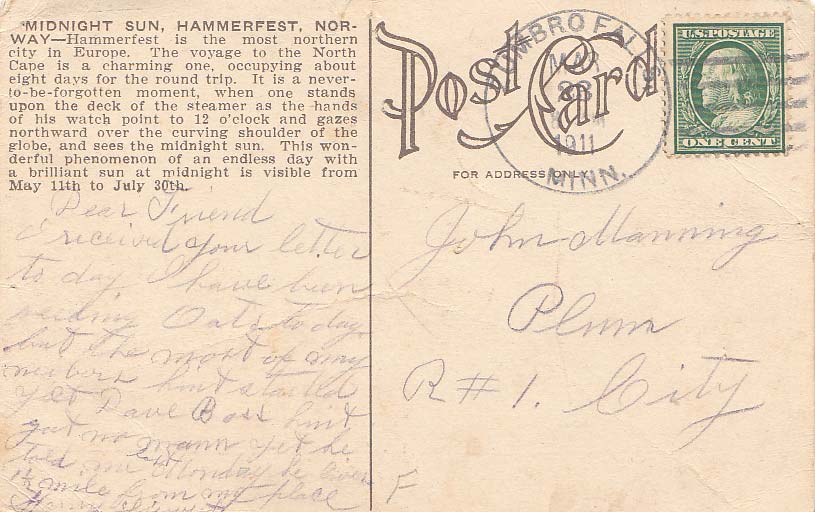 MIDNIGHT SUN, HAMMERFEST, NOR-
WAY—Hammerfest is the most northern
city in Europe. The voyage to the North
Cape is a charming one, occupying about
eight days for the round trip. It is a never-
to-be-forgotten moment, when one stands
upon the deck of the steamer as the hands
of his watch point to 12 o'clock and gazes
northward over the curving shoulder of the
globe, and sees the midnight sun. This won-
derful phenomenon of an endless day with
a brilliant sun at midnight is visible from
May 11th to July 30th.
Dear Friend
I received your letter
to day I have been
Oats to day
but the most of my
neibors haint started
yet Dave Boss haint
got no mann yet he
told me last Monday he lives
1/2 mile from my place
Post Card
FOR ADDRESS ONLY.
ZUMBRO FALLS
MAR
28
1911
MINN.
U.S. POSTAGE
ONE CENT
John Manning
Plum
R # 1. City
F